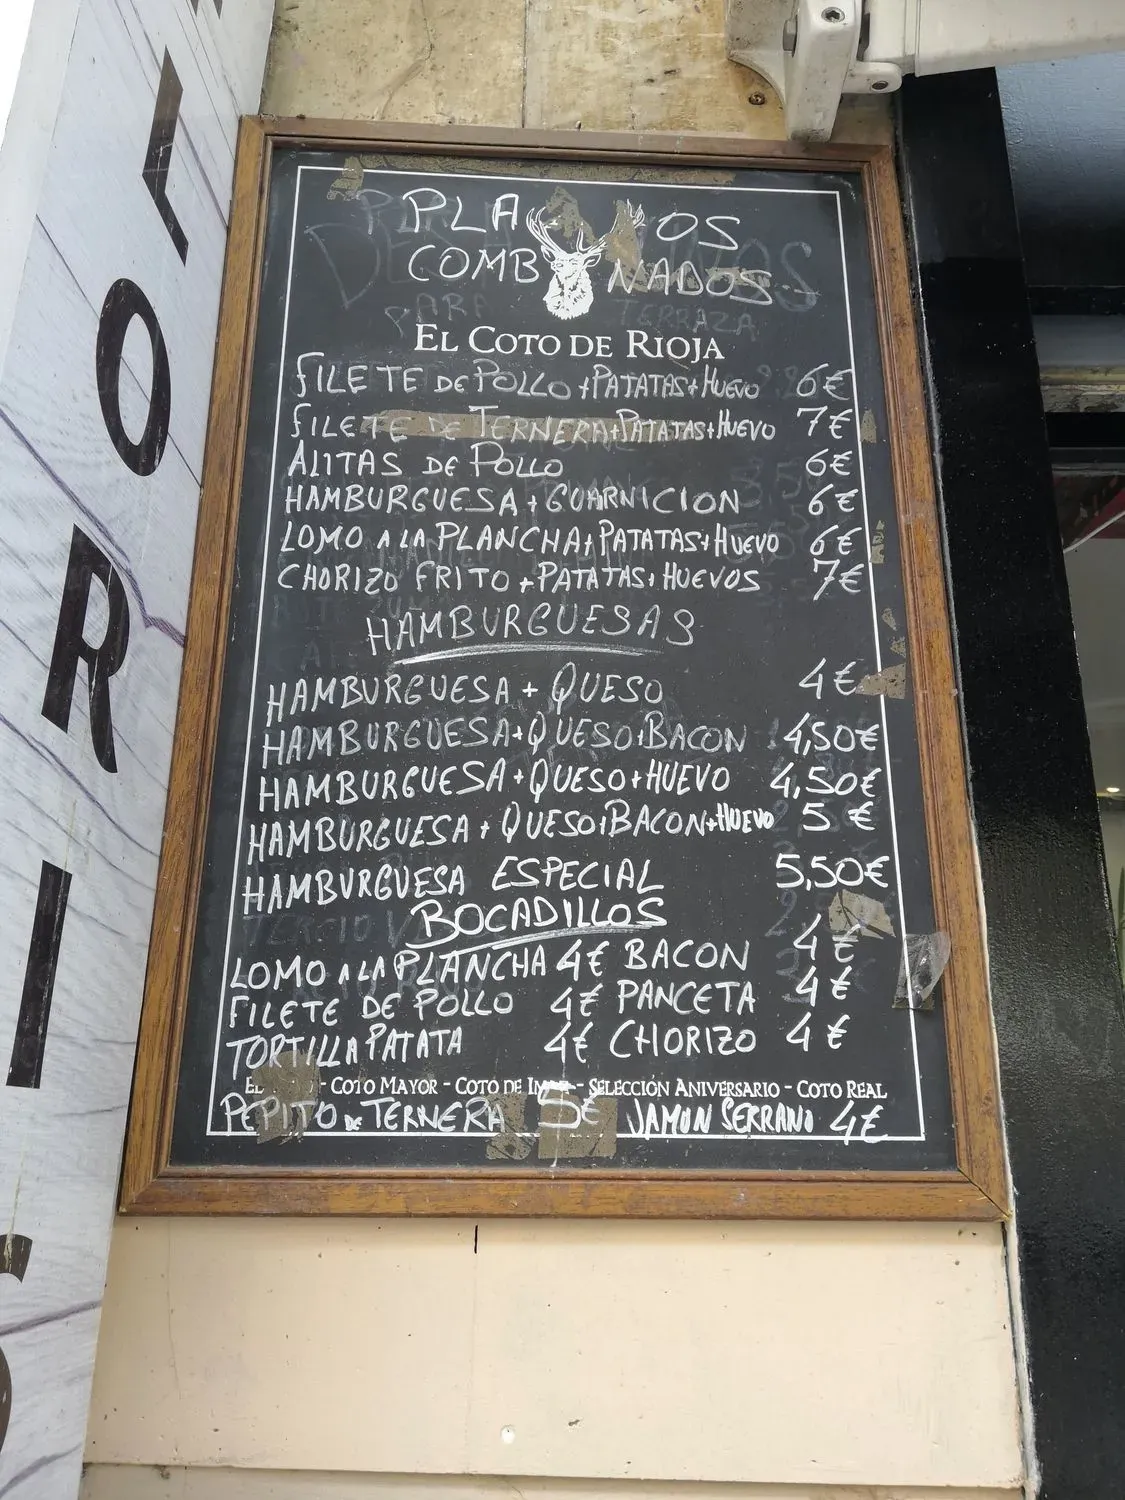 PLA OS
COMB NADOS
EL COTO DE RIOJA
FILETE DE POLLO + PATATAS + HUEVO 6€
FILETE DE TERNERA + PATATAS + HUEVO 7€
ALITAS DE POLLO 6€
HAMBURGUESA + GUARNICION 6€
LOMO A LA PLANCHA + PATATAS + HUEVO 6€
CHORIZO FRITO + PATATAS + HUEVOS 7€
HAMBURGUESAS
HAMBURGUESA + QUESO 4€
HAMBURGUESA + QUESO + BACON 4,50€
HAMBURGUESA + QUESO + HUEVO 4,50€
HAMBURGUESA + QUESO + BACON + HUEVO 5 €
HAMBURGUESA ESPECIAL 5,50€
BOCADILLOS
LOMO A LA PLANCHA 4€ BACON 4€
FILETE DE POLLO 4€ PANCETA 4€
TORTILLA PATATA 4€ CHORIZO 4€
- COTO MAYOR - COTO DE - SELECCIÓN ANIVERSARIO - COTO REAL
PEPITO DE TERNERA 5€ JAMON SERRANO 4€